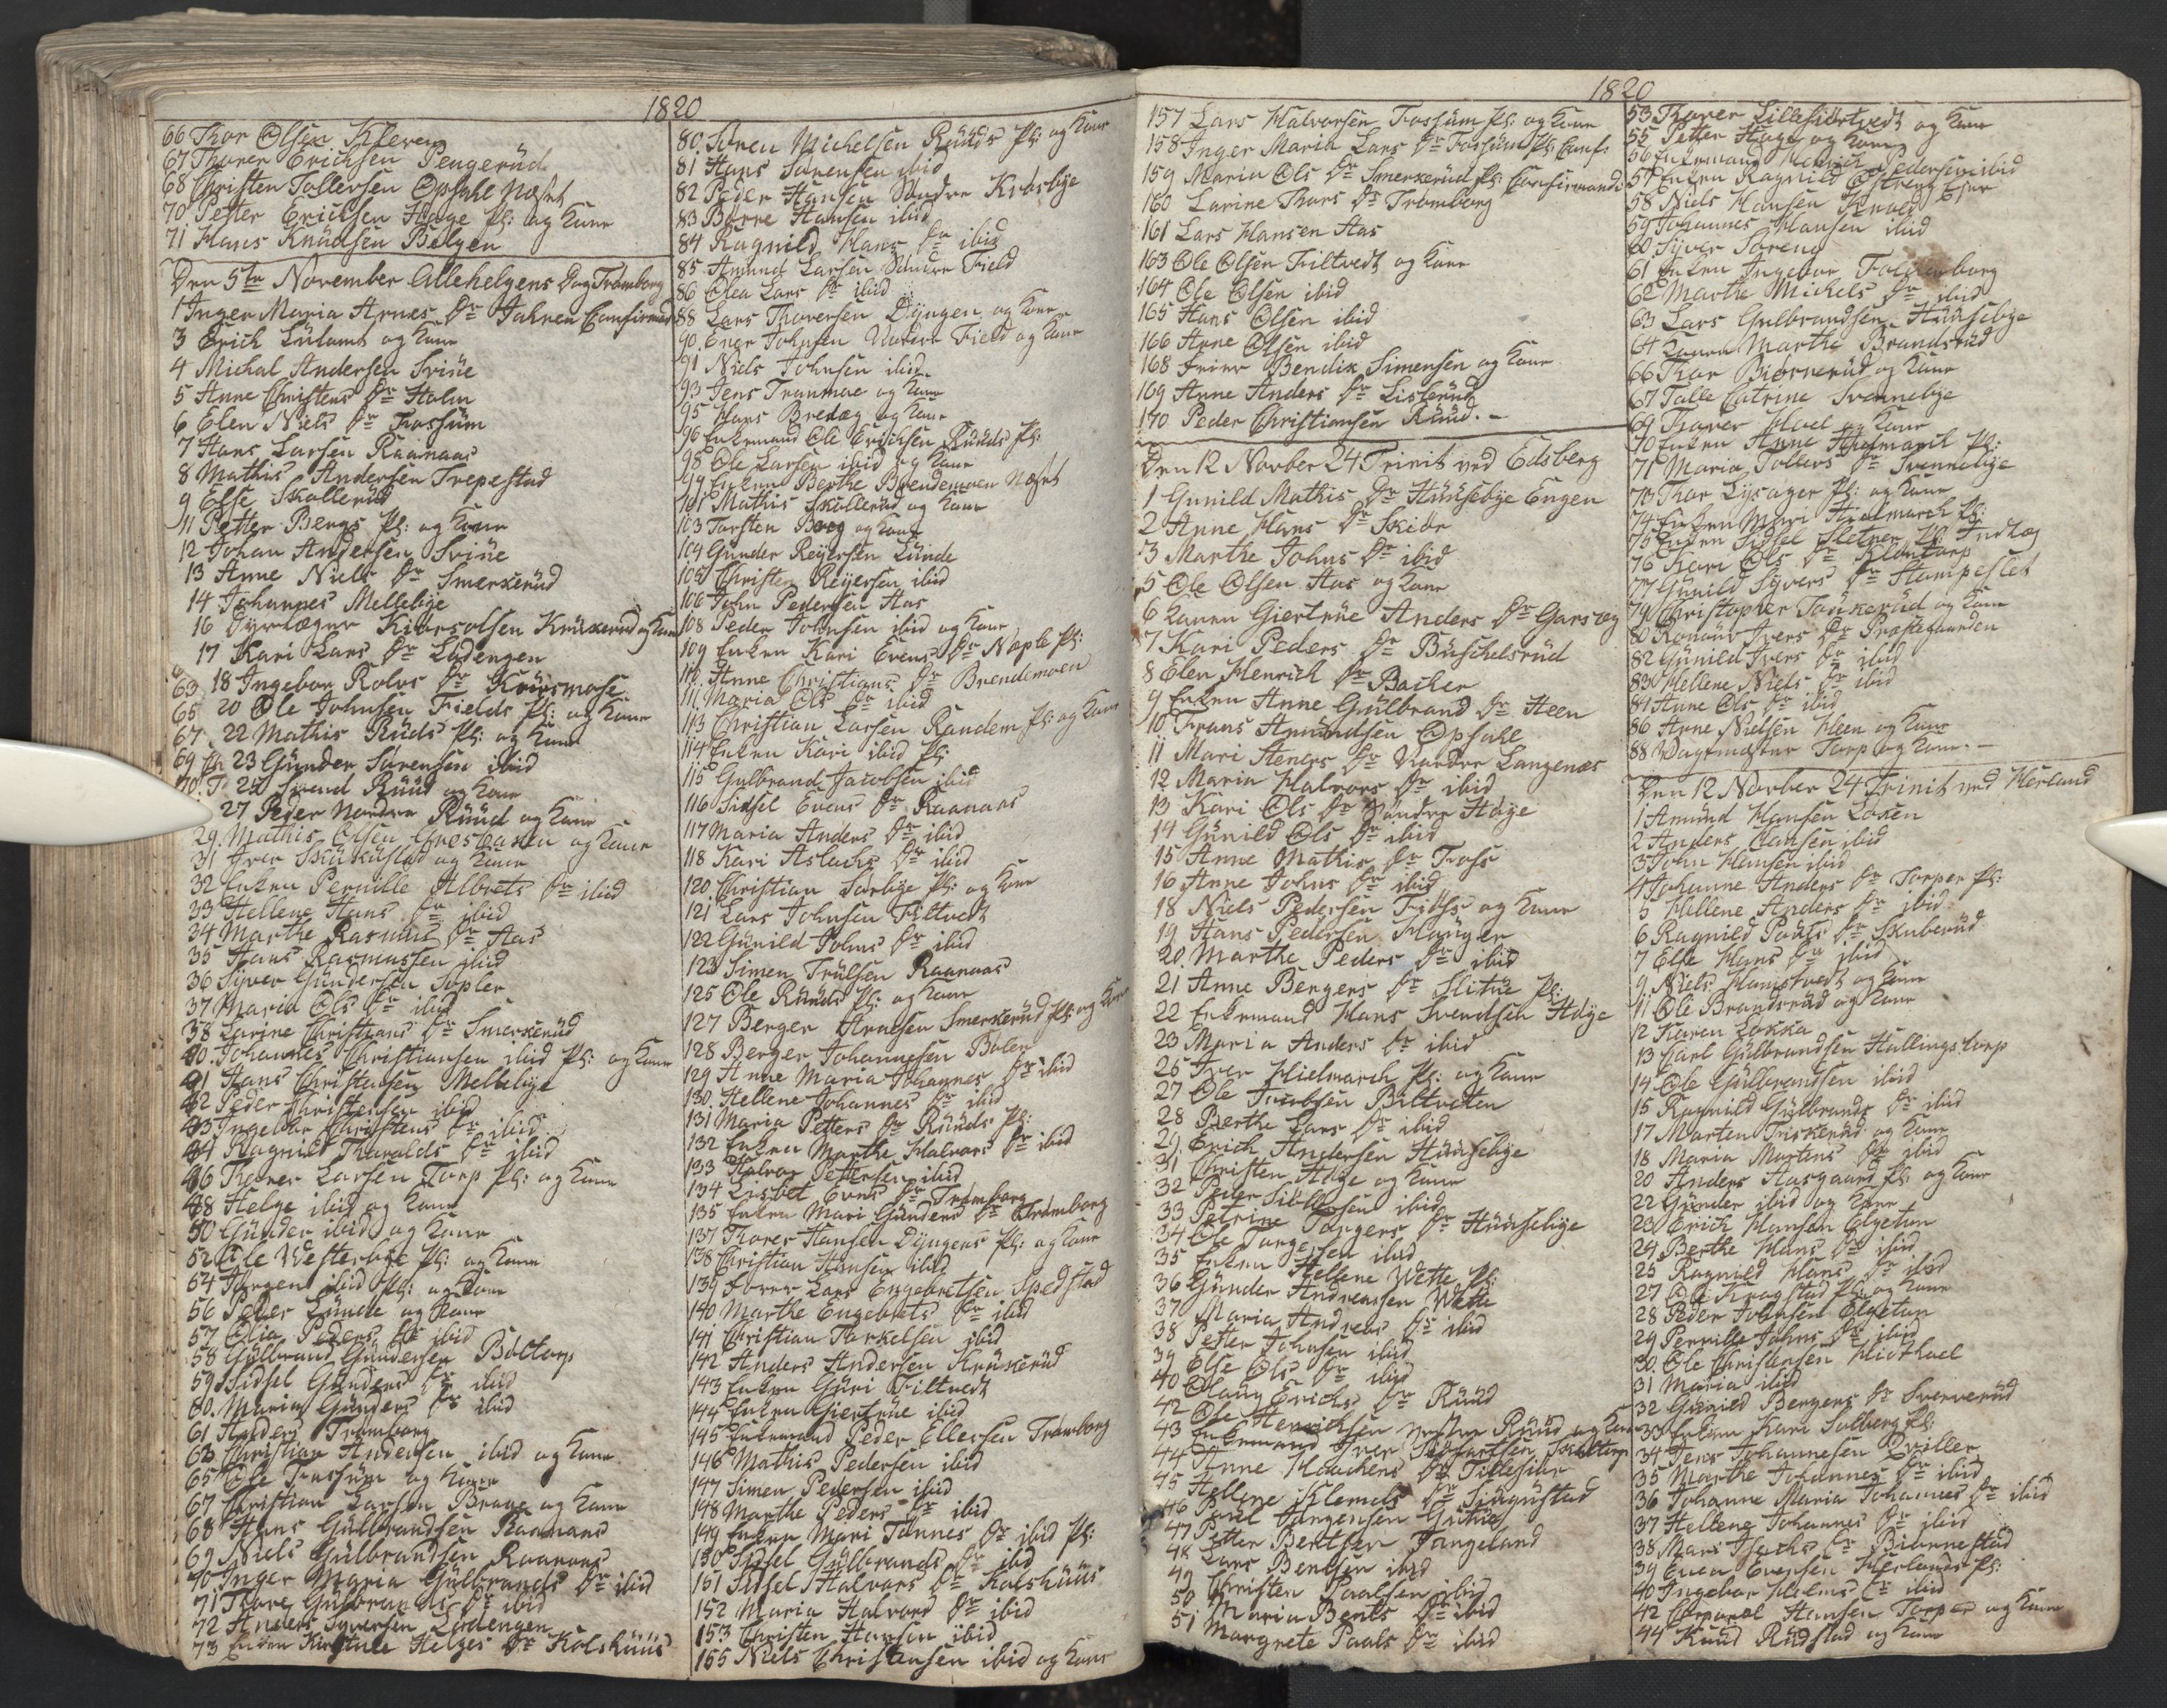 1820
66 Thor Olsen Kleven
67 Thorer Erichsen Pengerüd
68 Christen Tollersen Opsahl Næset
70 Petter Erichsen Hage Pl: og Kone
71 Hans Knüdsen Bølgen
Den 5te November Allehelgens Dag Trømborg
1 Inger Maria Arnes Dr Jahren Confirmed
3 Erich Lülum og Kone
4 Michal Andersen Sviüe
5 Anne Christens Dr Holm
6 Elen Niels Dr Fossüm
7 Hans Larsen Raanaas
8 Mathis Andersen Trepestad
9 Else Skallerüd
11 Petter Bergs Pl: og Kone
12 Johan Andersen Sviüe
13 Anne Niels Dr Smerkerüd
14 Johannes Mellebye
16 Kiørsolsen Krükerud og Kone
17 Kari Lars Dr Lødengen
63 18 Ingebor Rolvs Dr Kørsmose
65 20 Ole Johnsen Fields Pl: og Kone
67 22 Mathis Rüds Pl: og Kone
69 23 Günder Sørensen ibid
70 25 Svend Rüüd og Kone
27 Peder Nordre Rüüd og Kone
29. Mathis Olsen og Kone
31 Iver Skükustad og Kone
32 Enken Pernille Albrets Dr ibid
33 Hellene Hans Dr ibid
34 Marthe Rasmus Dr Aas
35 Hans Rasmussen ibid
36 Syver Gündersen Sopler
37 Maria Ols Dr ibid
38 Larine Christians Dr Smerkerüd
40. Johannes Christiansen ibid Pl: og Kone
41 Hans Christensen Mellebye
42 Peder Christensen ibid
43 Ingebor Christens Dr ibid
44 Ragnild Tharalds Dr ibid
46 Thorer Larsen Torp Pl: og Kone
48 Helge ibid og Kone
50 Günder ibid og Kone
52 Ole Westerbye Pl: og Kone
54 Jørgen ibid Pl: og Kone
56 Peder Lünde og Kone
57 Olia Peders Dr ibid
58 Gülbrand Gündersen Boltorp
59 Sidsel Günders Dr ibid
60. Maria Günders Dr ibid
61 Anders Trømborg
63 Christian Andersen ibid og Kone
65 Ole Fossüm og Kone
67 Christian Larsen Braae og Kone
68 Hans Gülbrandsen Raanaas
69 Niels Gülbrandsen Raanaas
70 Inger Maria Gülbrands Dr ibid
71 Thore Gülbrands Dr ibid
72 Anders Syversen Lødengen
73 Enken Kirstine Helges Dr Kolshüüs
80. Søren Michelsen Rüüds Pl: og Kone
81 Hans Sørensen ibid
82 Peder Hansen Søndre Krosbye
83 Børre Hansen ibid
84 Ragnild Hans Dr ibid
85 Amund Larsen Søndre Field
86 Olea Lars Dr ibid
88 Lars Thoresen Dyngen og Kone
90. Even Johnsen Nordre Field og Kone
91 Niels Johnsen ibid
93 Jens Tranmae og Kone
95 Hans Bredeg og Kone
96 Enkemand Ole Erichsen Rüüds Pl:
98 Ole Larsen ibid og Kone
99 Enken Berthe Brendemoen Næset
101 Mathis Skallerud og Kone
103 Torsten Berg og Kone
104 Günder Reyersen Lünde
105 Christen Reyersen ibid
106 John Pedersen Aas
108 Peder Johnsen ibid og Kone
109 Enken Kari Evens Dr Nople Pl:
110. Anne Christians Dr Brendemoen
111. Maria Ols Dr ibid
113 Christian Larsen Randem Pl: og Kone
114 Enken Kari ibid Pl:
115 Gulbrand Jacobsen ibid
116 Sidsel Evens Dr Raanaas
117 Maria Anders Dr ibid
118 Kari Aslachs Dr ibid
120 Christian Sørbye Pl: og Kone
121 Lars Johnsen Filtvedt
122 Günild Johns Dr ibid
123 Simen Trülsen Raanaas
125 Ole Rüüds Pl: og Kone
127 Berger Arnesen Smerkerüd Pl: og Kone
128 Berger Johannesen Boler
129 Anne Maria Johannes Dr ibid
130. Hellene Johannes Dr ibid
131 Maria Petters Dr Rüüds Pl:
132 Enken Marthe Halvors Dr ibid
133 Halvor Pettersen ibid
134 Lisbet Evens Dr Trømborg
135 Enken Mari Günders Dr Trømborg
137 Thorer Hansen Dyngens Pl: og Kone
138 Christian Hansen ibid
139 Lars Engebretsen Spedstad
140 Marthe Engebrets Dr ibid
141 Christian Torkelsen ibid
142 Anders Andersen Krükerüd
143 Enken Güri Filtvedt
144 Enken Giertrüe ibid
145 Enkemand Peder Ellersen Trømborg
146 Mathis Pedersen ibid
147 Simen Pedersen ibid
148 Marthe Peders Dr ibid
149 Enken Mari Tønnes Dr ibid Pl:
150 Sidsel Gülbrands Dr ibid
151 Sidsel Halvors Dr Kolshüüs
152 Maria Halvors Dr ibid
153 Christen Hansen ibid
155 Niels Christensen ibid og Kone
1820
157 Lars Halvorsen Fossüm Pl: og Kone
158 Inger Maria Lars Dr Fossüm Pl: Conf:
159 Maria Ols Dr Smerkerüd Pl: Confirmandi
160 Larine Thors Dr Trømborg
161 Lars Hansen Aas
163 Ole Olsen Filtvedt og Kone
164 Ole Olsen ibid
165 Hans Olsen ibid
166 Arne Olsen ibid
168 Bendix Simensen og Kone
169 Anne Anders Dr Lislerüd
170 Peder Christiansen Rüüd. –
Den 12 Novber 24 Trinit ved Edsberg
1 Gunild Mathis Dr Hüüsebye Engen
2 Anne Hans Dr Skiør
3 Marthe Johns Dr ibid
5 Ole Olsen Aas og Kone
6 Konen Giertrüe Anders Dr Garseg
7 Kari Peders Dr Büschelsrüd
8 Elen Henrich Dr Backer
9 Enken Anne Gülbrand Dr Heen
10 Frans Amündsen Opsahl
11 Mari Steners Dr Nordre Langenæs
12 Maria Halvors Dr ibid
13 Kari Ols Dr Søndre Høye
14 Günild Ols Dr ibid
15 Anne Mathis Dr Foss
16 Anne Johns Dr ibid
18 Niels Pedersen Fioss og Kone
19 Hans Pedersen Haüger
20. Marthe Peders Dr ibid
21 Anne Bergers Dr Slitüe Pl:
22 Enkemand Hans Svendsen Høye
23 Maria Anders Dr ibid
25 Iver Hielmarch Pl: og Kone
27 Ole Jacobsen Biltveten
28 Berthe Lars Dr ibid
29. Erich Andersen Hüüsebye
31 Christen Høye og Kone
32 Peder ibid
33 Petrine Torgers Dr Hüüsebye
34 Ole Torgersen ibid
35 Enken Hellene Wette Pl:
36 Günder Andreassen Wette
37 Maria Andreas Dr ibid
38 Petter Johnsen ibid
39 Else Ols Dr ibid
40 Olaug Erichs Dr Rüüd
42 Ole Henrichsen Vestre Rüüd og Kone
43 Enkemand Iver
44 Anne Haachens Dr Tillesiør
45 Hellene Klemets Dr Siügüstad
46 Paul Jørgensen Gütüe
47 Petter Bentsen Tangeland
48 Lars Bentsen ibid
49 Christen Paalsen ibid
50 Maria Bents Dr ibid
51 Margrete Paals Dr ibid
53 Thorer Lillefiørtvedt og Kone
55 Petter Hage og Kone
56 Enkemand Henrich Pedersen ibid
57 Enken Ragnild Østreng Eier
58 Niels Hansen Knold
59 Johannes Hansen ibid
60 Syver Søreng
61 Enken Ingebor Falkenborg
62 Marthe Michels Dr ibid
63 Lars Gulbrandsen Hüüsebye
64 Konen Marthe Brandsrüd
66 Thor Biørnerüd og Kone
67 Talle Catrine Svennebye
69 Thorer Hoel og Kone
70 Enken Anne Hielmarch Pl:
71 Maria Tollers Dr Svennebye
73 Thor Lysager Pl: og Kone
74 Enken Mari Hielmarch Pl:
75 Enken Sidsel Sletner Pl: Indlæg
76 Kari Ols Dr Klontorp
77 Günild Syvers Dr Stampeslet
79 Christopher Taükerüd og Kone
80 Ivers Dr Præstegaarden
82 Günild Ivers Dr ibid
83 Hellene Niels Dr ibid
84 Anne Ols Dr ibid
86 Arne Nielsen Heen og Kone
88 Vagtmester Torp og Kone. –
Den 12 Novber 24 Trinit ved Herland
1 Amünd Hansen Løken
2 Anders Hansen ibid
3 John Hansen ibid
4 Johanne Anders Dr Torper Pl:
5 Hellene Anders Dr ibid
6 Ragnild Pouls Dr Skuberüd
7 Else Hans Dr ibid
9 Niels Hamstvedt og Kone
11 Ole Brandsrüd og Kone
12 Karen Løkka
13 Karl Gülbrandsen Hallingstorp
14 Ole Gülbrandsen ibid
15 Ragnild Gülbrands Dr ibid
17 Morten Friskerüd og Kone
18 Maria Mortens Dr ibid
20 Anders Aasgaard Pl: og Kone
22 Günder ibid og Kone
23 Erich Hansen Elgetun
24 Berthe Hans Dr ibid
25 Ragnild Hans Dr ibid
27 Ole Kragstad Pl: og Kone
28 Peder Johnsen Elgetun
29 Pernille Johns Dr ibid
30. Ole Christensen Miothoel
31 Maria ibid
32 Günild Bergers Dr Sververüd
33 Enken Kari Solberg Pl:
34 Jens Johannesen Qviller
35 Marthe Johannes Dr ibid
36 Johanne Maria Johannes Dr ibid
37 Hellene Johannes Dr ibid
38 Mari Dr Biørnestad
39 Even Evensen Herlands Pl:
40 Ingebor Helmes Dr ibid
42 Corporal Hansen Torper og Kone
44 Knüd Rüdstad og Kone